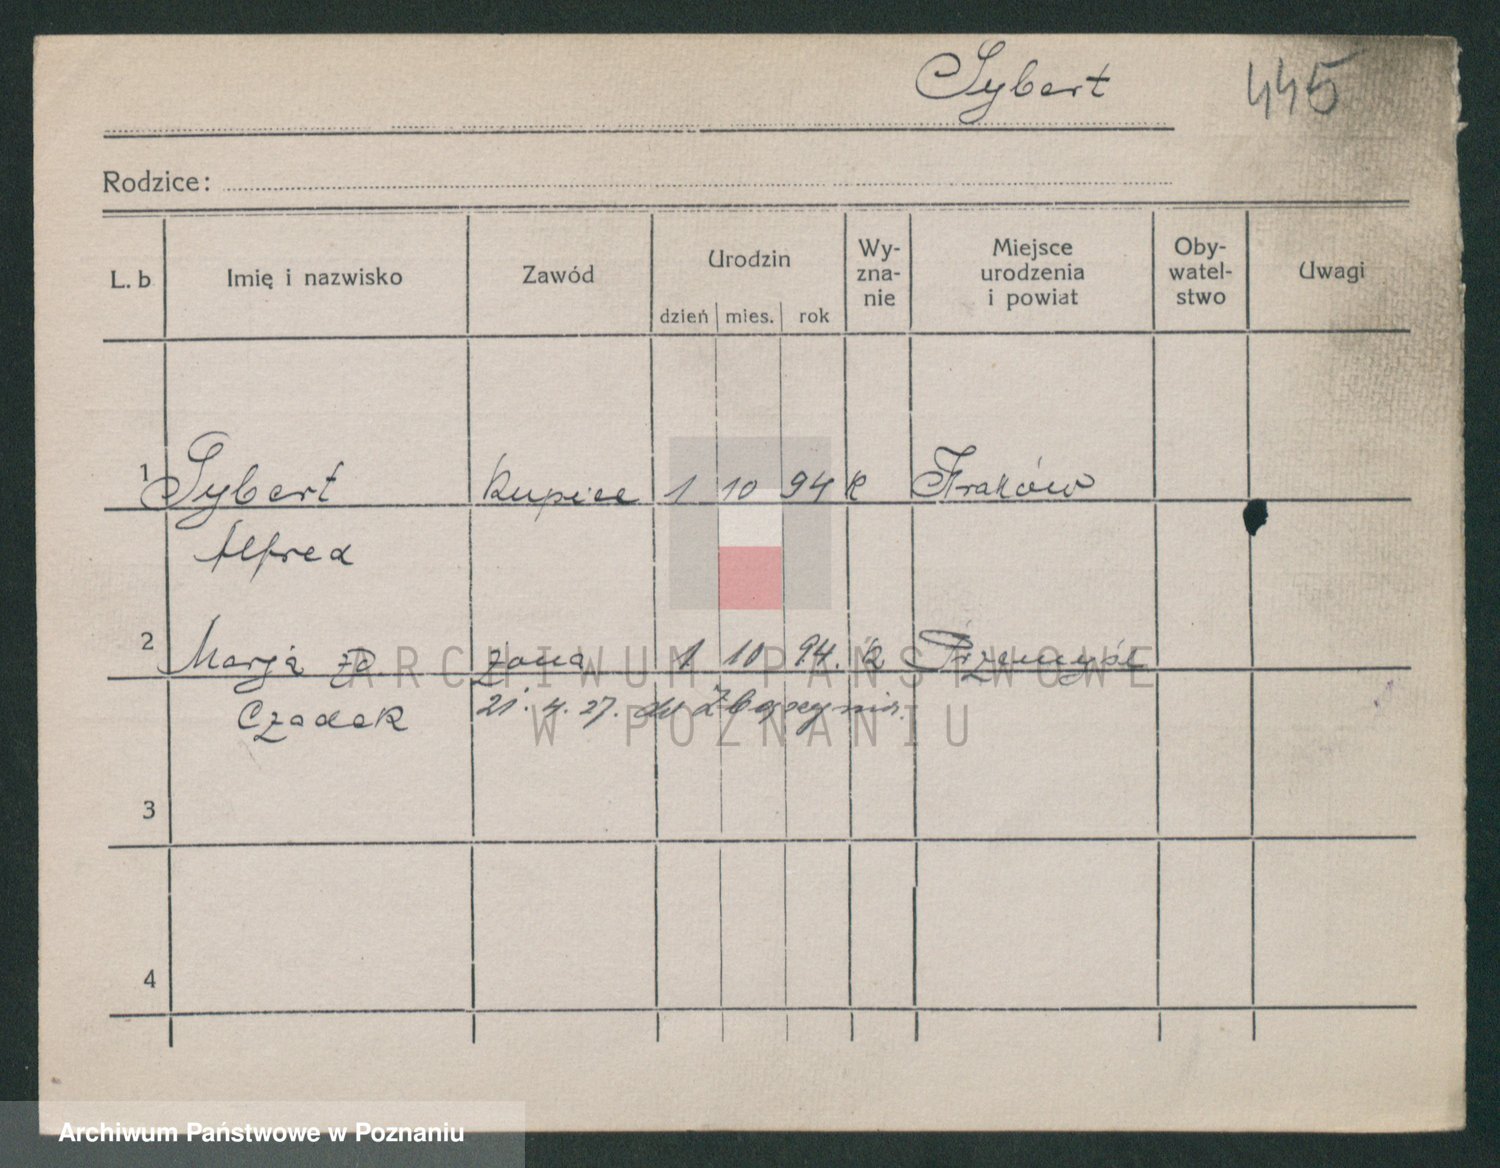 Sybert 445
Rodzice:
L. b Imię i nazwisko Zawód Urodzin Wy-zna-nie Miejsce urodzenia i powiat Oby-watel-stwo Uwagi
dzień mies. rok
1 Sybert Kupiec 1 10 94 k Kraków
Alfred
2 Marja zd. żona 1 10 94. k Przemyśl
Czadek 21. 4. 27. do
3
4
ARCHIWUM PAŃSTWOWE
W POZNANIU
Archiwum Państwowe w Poznaniu